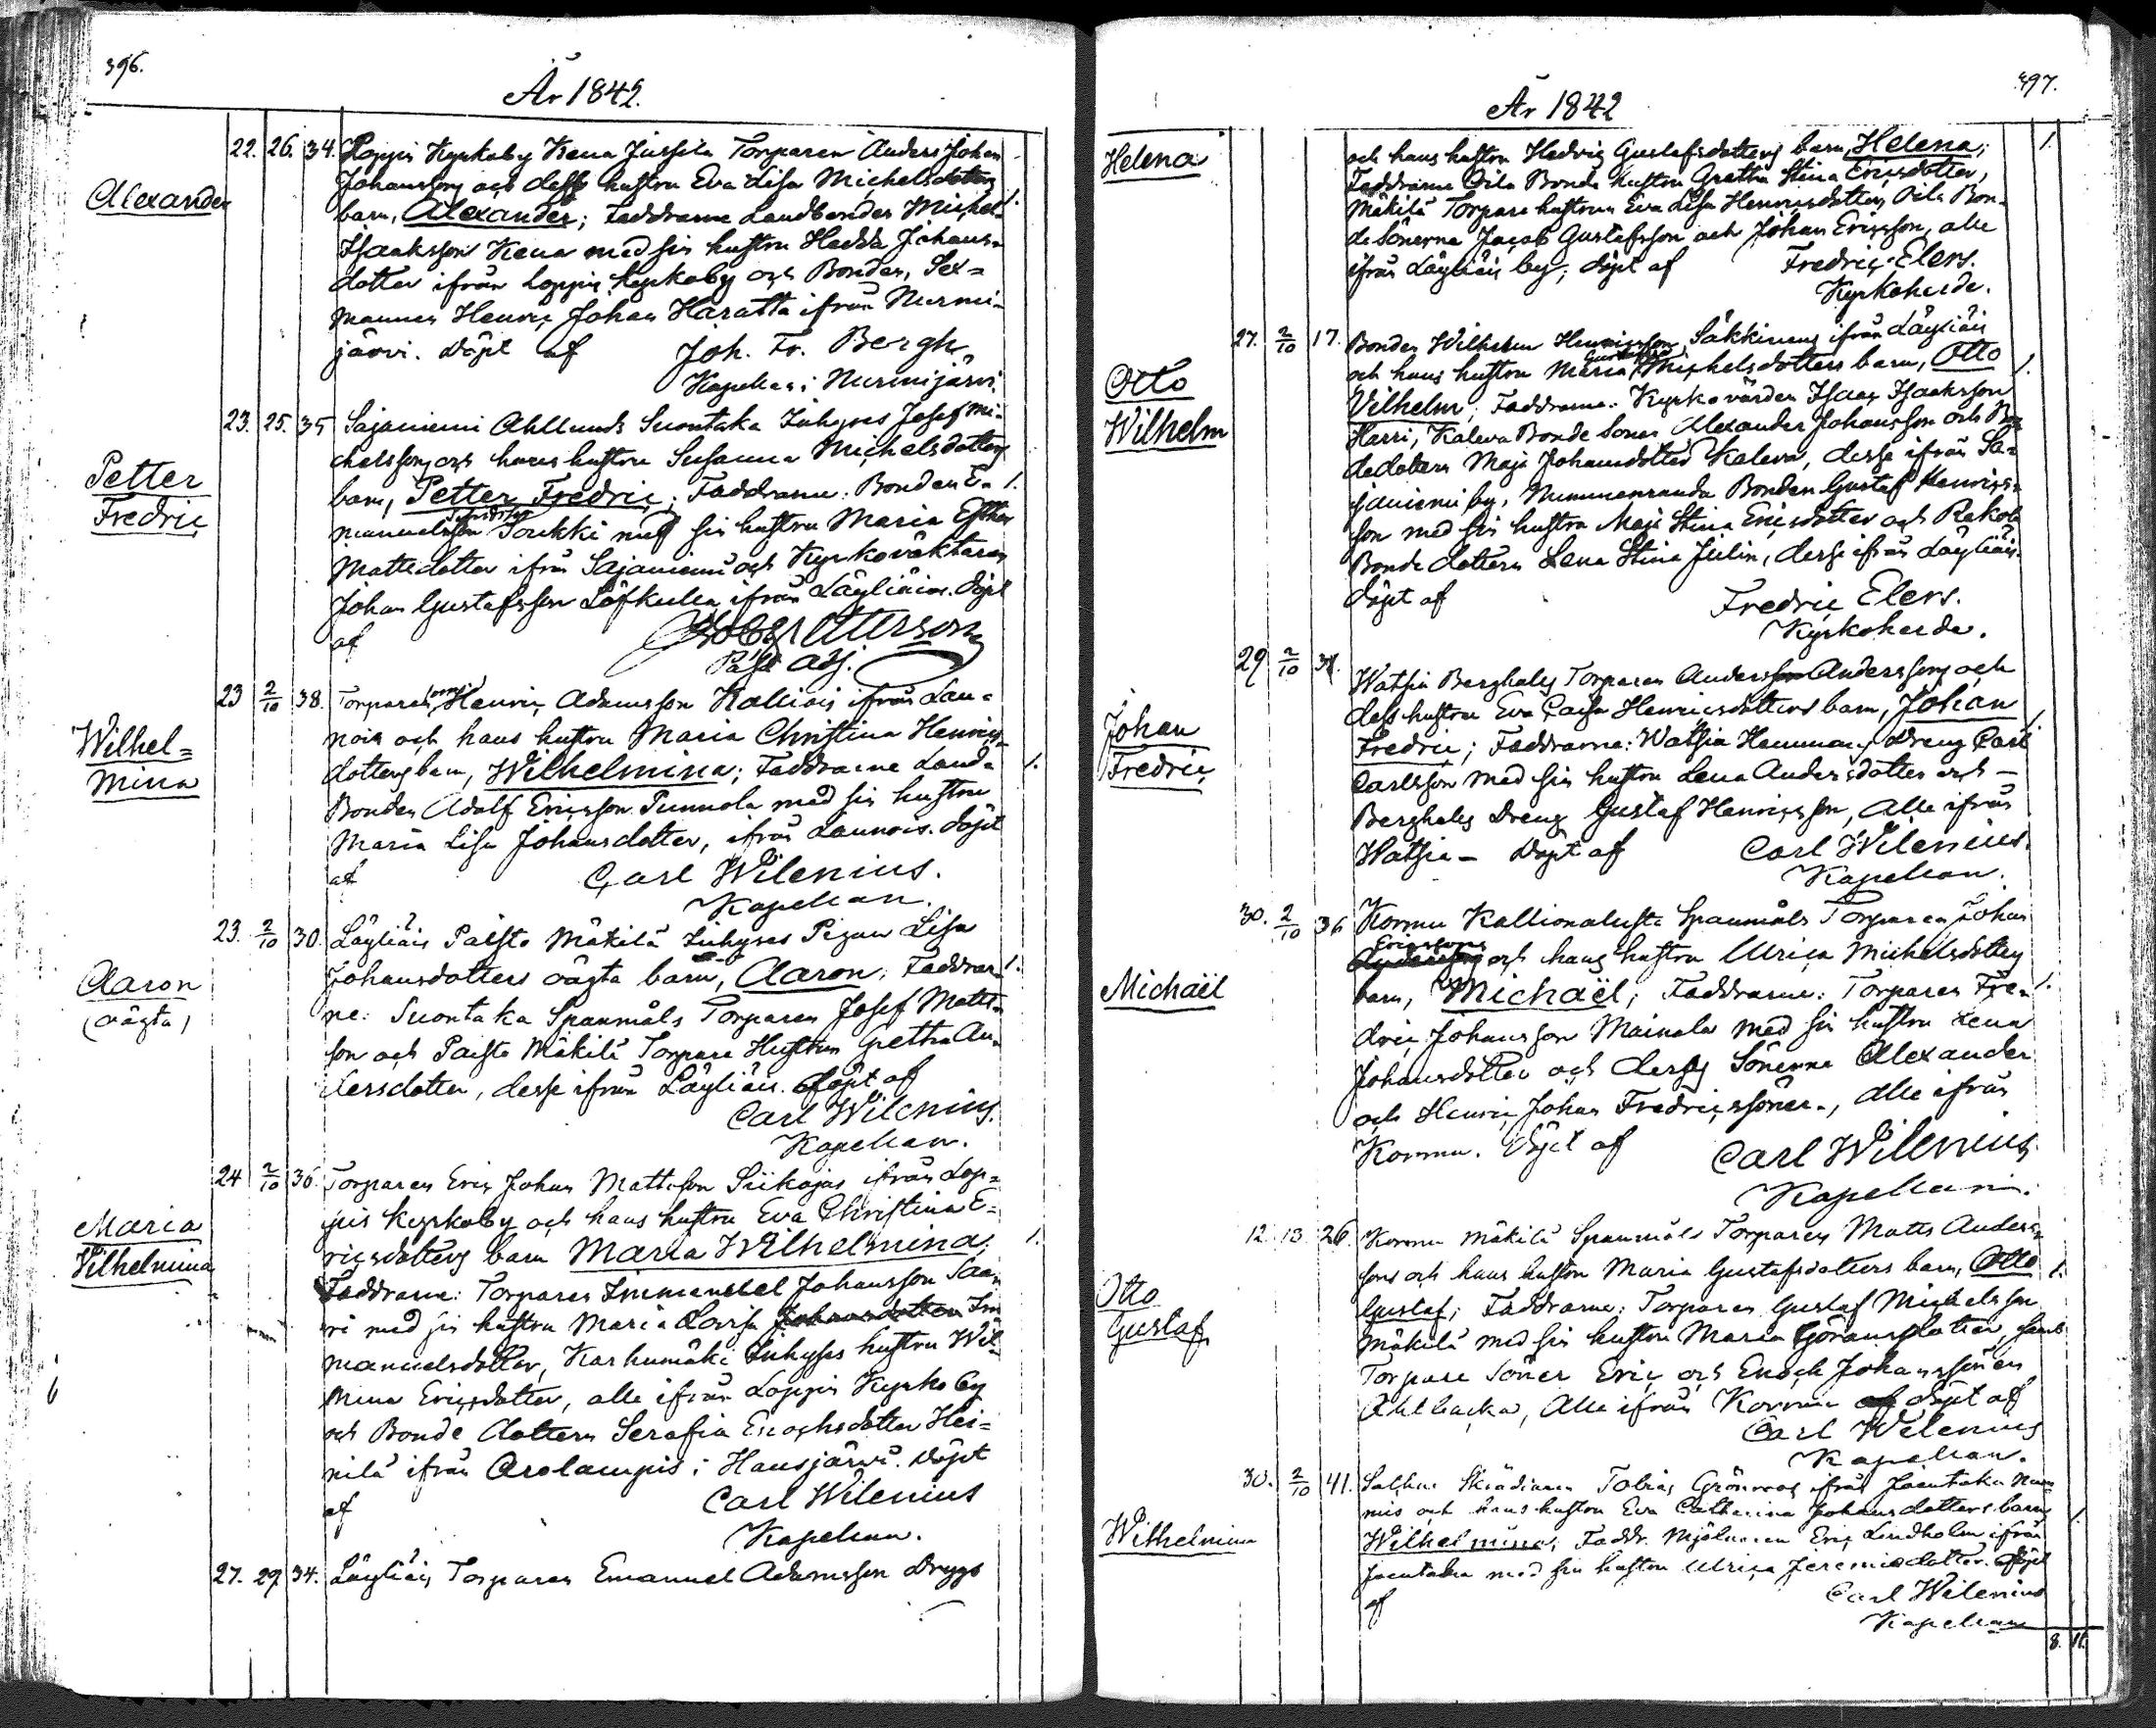 396.
År 1842.
22. 26. 34. Loppis Kyrkoby Keua Jussila Torparen Anders Johan
Johanssons och dess hustru Eva Lisa Michelsdotters
Alexander
barn, Alexander; Faddrarne Landbonden Michel 1.
Isaaksson Keua med sin hustru Hedda Johans-
dotter ifrån Loppis Kyrkoby och Bonden, Sex=
mannen Henric Johan Haratta ifrån Nurmi-
järvi. Döpt af Joh. Fr. Bergh
Kapellan i Nurmijärvi.
23. 25. 35 Sajaniemi Ahllunds Suontaka Inhyses Josef Mi-
chelssons och hans hustru Susanna Michelsdotters
Petter
Fredric
barn, Petter Fredric; Faddrarne: Bonden E- 1.
manuelsson Soukki med sin hustru Maria Esther
Mattsdotter ifrån Sajaniemi och Kyrkoväktaren
Johan Gustafsson Löfkulla ifrån Läyliäis. Döpt
af
Past. adj.
23 2/10 38. Torparen Henric Adamsson Kalliois ifrån Lau-
nois och hans hustru Maria Christina Henrics-
Wilhel=
mina
dotters barn, Wilhelmina; Faddrarne Land- 1.
Bonden Adolf Ericsson Punnola med sin hustru
Maria Lisa Johansdotter, ifrån Launois. Döpt
af Carl Wilenius.
Kapellan.
23. 2/10 30. Läyliäis Paisto Mäkilä Inhyses Pigan Lisa
Aaron
(oägta)
Johansdotters oägta barn, Aaron; Faddrar- 1.
ne: Suontaka Spanmåls Torparen Josef Matts-
son och Paisto Mäkilä Torpare Hustrun Gretha An-
dersdotter, desse ifrån Läyliäis. Döpt af
Carl Wilenius.
Kapellan.
24 2/10 36. Torparen Eric Johan Mattsson Siikajas ifrån Lop-
pis Kyrkoby och hans hustru Eva Christina E-
Maria
Wilhelmina
ricsdotters barn Maria Wilhelmina; 1.
Faddrarne: Torparen Immanuel Johansson Saa-
ri med sin hustru Maria Lovisa Johansdotter Im
manuelsdotter, Karhumäki Inhyses hustru Wil-
mina Ericsdotter, alle ifrån Loppis Kyrkoby
och Bonde dottern Serafia Enochsdotter Hei-
nilä ifrån Arolampis i Hausjärvi. Döpt
af Carl Wilenius
Kapellan.
27. 29. 34. Läyliäis Torparen Emanuel Adamsson Drygs
397.
År 1842
Helena
och hans hustru Hedvig Gustafsdotters barn, Helena; 1.
Faddrarne Oila Bonde hustru Gretha Stina Ericsdotter,
Mäkilä Torpare hustrun Eva Lisa Henricsdotter, Oila Bon-
de Sönerna Jacob Gustafsson och Johan Ericsson, alle
ifrån Läyliäis by; döpt af Fredric Elers.
Kyrkoherde.
27. 2/10 17. Bonden Wilhelm Henricsson Säkkinens ifrån Läyliäis
Otto
Wilhelm
och hans hustru Maria Michelsdotters barn, Otto 1.
Vilhelm; Faddrarne: Kyrkovärden Isaac Isaaksson
Harri, Kaleva Bonde Sonen Alexander Johansson och Bon-
dedottern Maja Johansdotter Kaleva, desse ifrån Sa-
janiemi by, Nummenranda Bonden Gustaf Henrics-
son med sin hustru Maja Stina Ericsdotter och Rekola
Bonde dottern Lena Stina Julin, desse ifrån Läyliäis.
döpt af Fredric Elers.
Kyrkoherde.
29 2/10 31. Watsia Berghälls Torparen Andersson Anderssons och
dess hustru Eva Caisa Henricsdotters barn, Johan 1.
Johan
Fredric
Fredric; Faddrarne: Watsia Dreng Carl
Carlsson med sin hustru Lena Andersdotter och
Berghälls Dreng Gustaf Henricsson, Alle ifrån
Watsia – Döpt af Carl Wilenius.
Kapellan.
30. 2/10 36 Kormu Kallionalusta Spanmåls Torparen Johan
Ericssons
och hans hustru Ulrica Michelsdotters
Michaël
barn, Michaël; Faddrarne: Torparen Fre- 1.
dric Johansson Mainala med sin hustru Lena
Johansdotter och deras Sönerne Alexander
och Henric Johan Fredricssöner, alle ifrån
Kormu. Döpt af Carl Wilenius
Kapellan.
12. 13. 26. Kormu Mäkilä Spanmåls Torparen Matts Anders-
sons och hans hustru Maria Gustafsdotters barn, Otto 1.
Otto
Gustaf
Gustaf; Faddrarne: Torparen Gustaf Michelsson
Mäkilä med sin hustru Maria Göransdotter, samt
Torpare Söner Eric och Enoch Johanssöner
Ahlbacka, Alle ifrån Kormu af döpt af
Carl Wilenius
Kapellan.
30. 2/10 41. Skrädaren Tobias Grönroos ifrån Joentaka
och hans hustru Eva Catharina Johansdotters barn 1.
Wilhelmina
Wilhelmina; Faddr. Mjölnaren Eric Lindholm ifrån
Joentaka med sin hustru Ulrica Jeremiædotter. Döpt
af Carl Wilenius
Kapellan
8. 11.